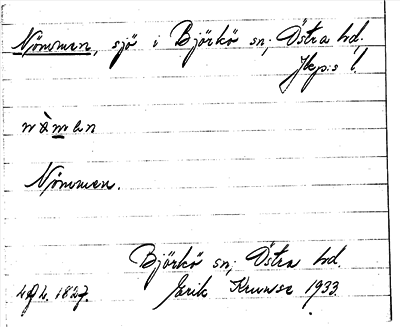 Nömmen, sjö i Björkö sn; Östra hd,
Jkp:s l.
nòmen
Nömmen.
Björkö sn; Östra hd.
Erik 1933.
1827.